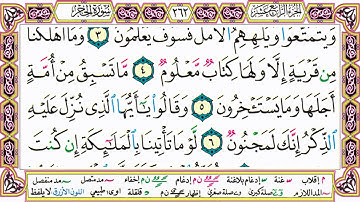 الجزء الرابع عشر ٢٦٢ سورة الحجر
وَيَتَمَتَّعُوا۟ وَيُلْهِهِمُ ٱلْأَمَلُ فَسَوْفَ يَعْلَمُونَ ٣ وَمَآ أَهْلَكْنَا
مِن قَرْيَةٍ إِلَّا وَلَهَا كِتَابٌ مَّعْلُومٌ ٤ مَّا تَسْبِقُ مِنْ أُمَّةٍ
أَجَلَهَا وَمَا يَسْتَـْٔخِرُونَ ٥ وَقَالُوا۟ يَـٰٓأَيُّهَا ٱلَّذِى نُزِّلَ عَلَيْهِ
ٱلذِّكْرُ إِنَّكَ لَمَجْنُونٌ ٦ لَّوْ مَا تَأْتِينَا بِٱلْمَلَـٰٓئِكَةِ إِن كُنتَ